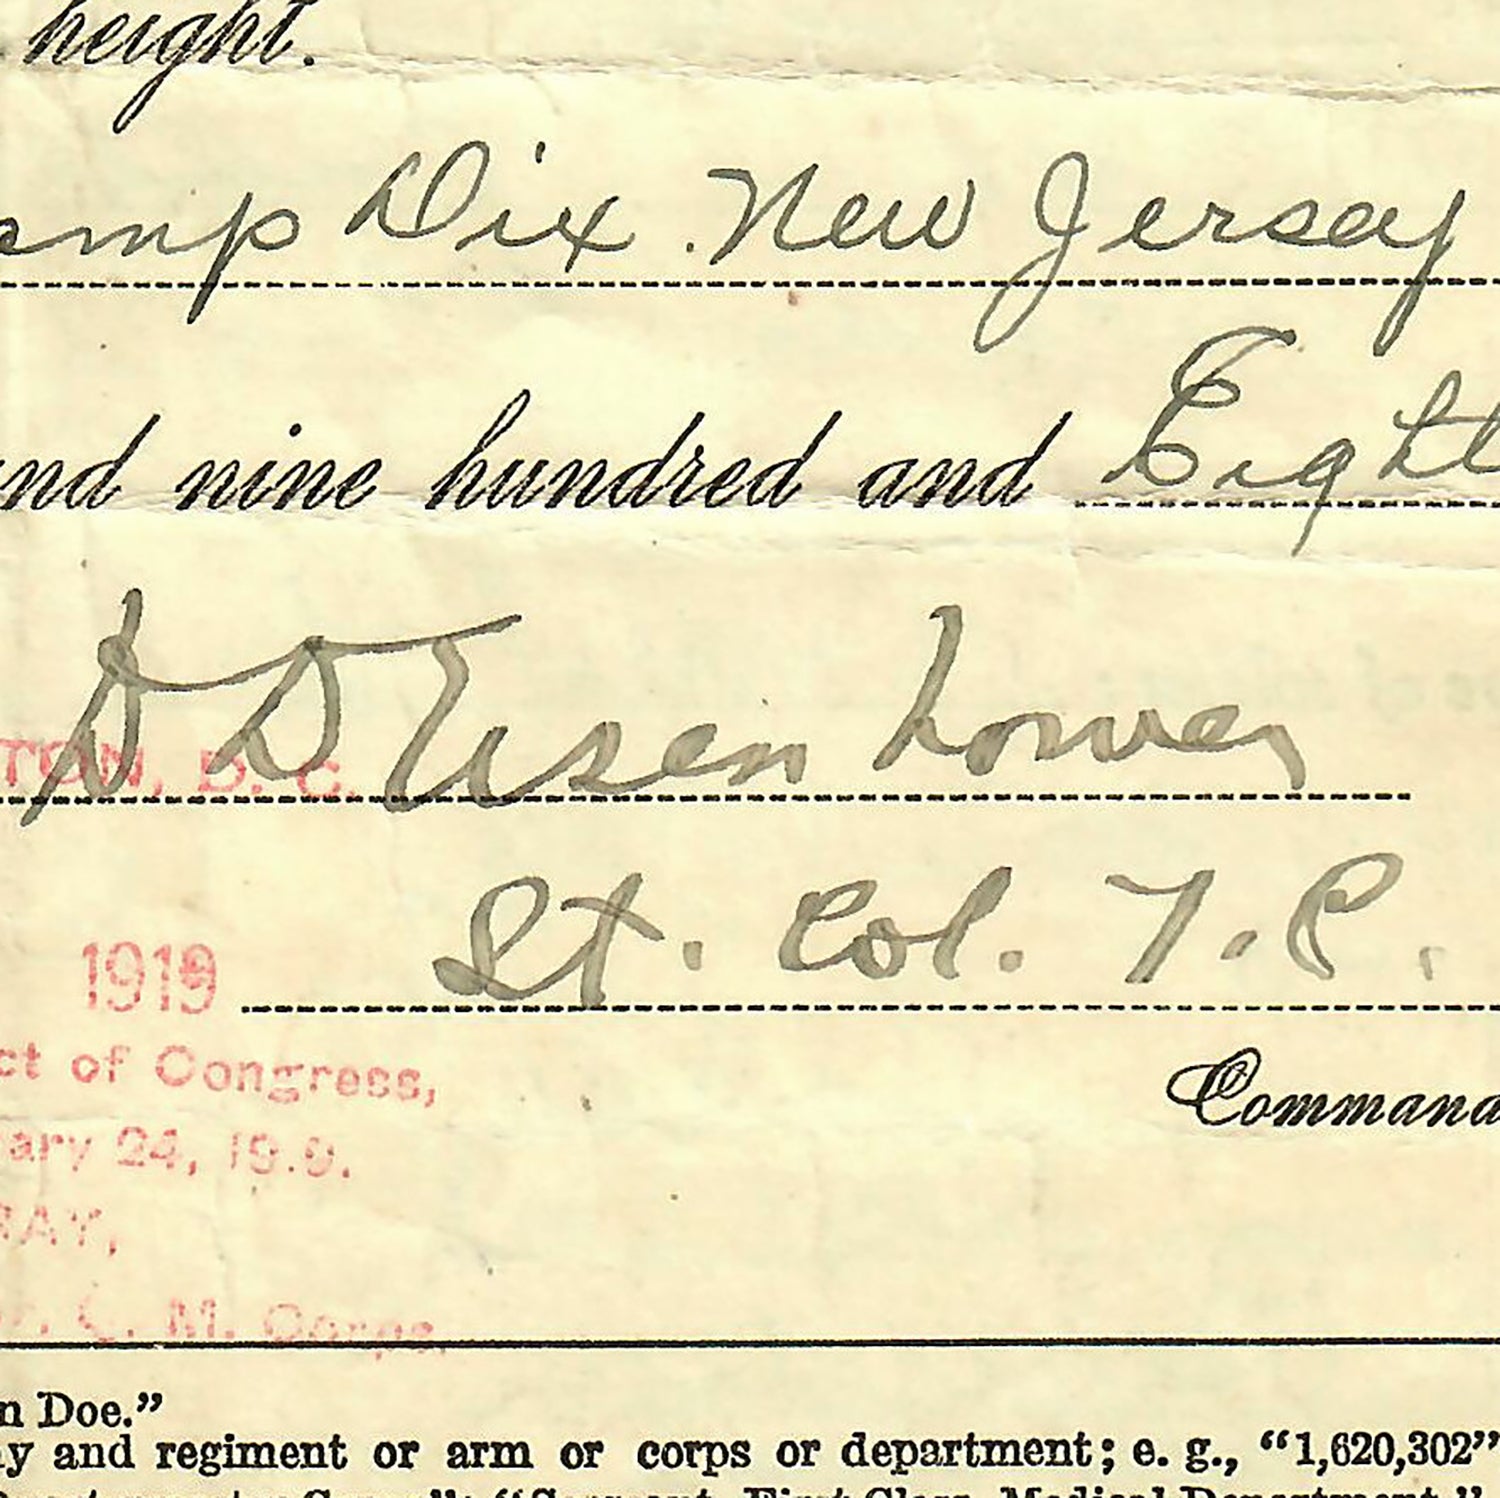 height.
amp Dix New Jersey
and nine hundred and Eight
D D Eisenhower
TON, D. C.
Lt. Col. T. C.
1919
ct of Congress,
Comman
ary 24, 19.9.
RAY,
C. M. Corps.
n Doe.”
y and regiment or arm or corps or department; e. g., “1,620,302”
“Sergeant, First Class, Medical Department.”